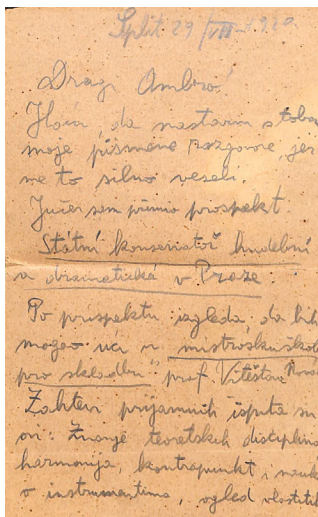 Split 29/VII 1920.
Dragi Ambro!
da nastavim s tobom
moje pismene razgovore, jer
me to silno veseli.
Jučer sam primio prospekt
Státní konservatoř hudební
a dramatická v Praze.
Po prospektu izgleda, da bih
mogao ući u „mistrovsku školu
pro skladbu" prof. Vítězslava
Zahtevi prijamnih ispita su
ovi: Znanje teoretskih disciplina
harmonija, kontrapunkt i nauk
o instrumentima, ogled vlastitih